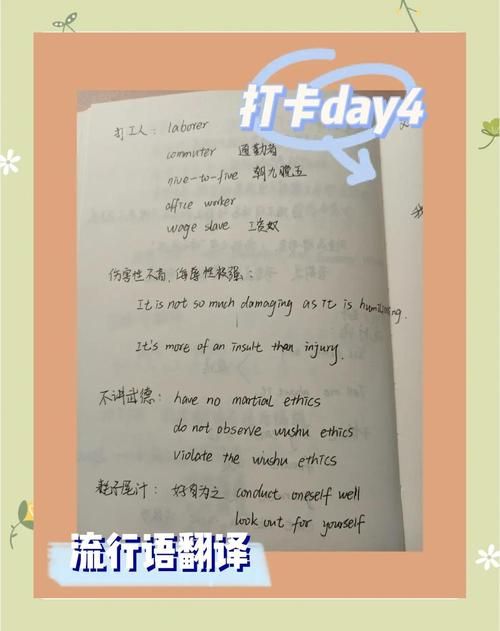 打卡day4
打工人：laborer
commuter 通勤者
nive-to-five 朝九晚五
office worker
wage slave 工资奴
伤害性不高，侮辱性极强：
It is not so much damaging as it is humiliating.
It's more of an insult than injury.
不讲武德：have no martial ethics
do not observe wushu ethics
violate the wushu ethics
耗子尾汁：好自为之 conduct oneself well
look out for yourself
流行语翻译